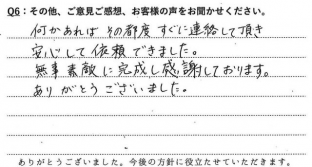 Q6：その他、ご意見ご感想、お客様の声をお聞かせください。
何かあれば その都度 すぐに連絡して頂き
安心して 依頼できました。
無事 素敵に完成し感謝しております。
ありがとうございました。
ありがとうございました。今後の方針に役立たせていただきます。